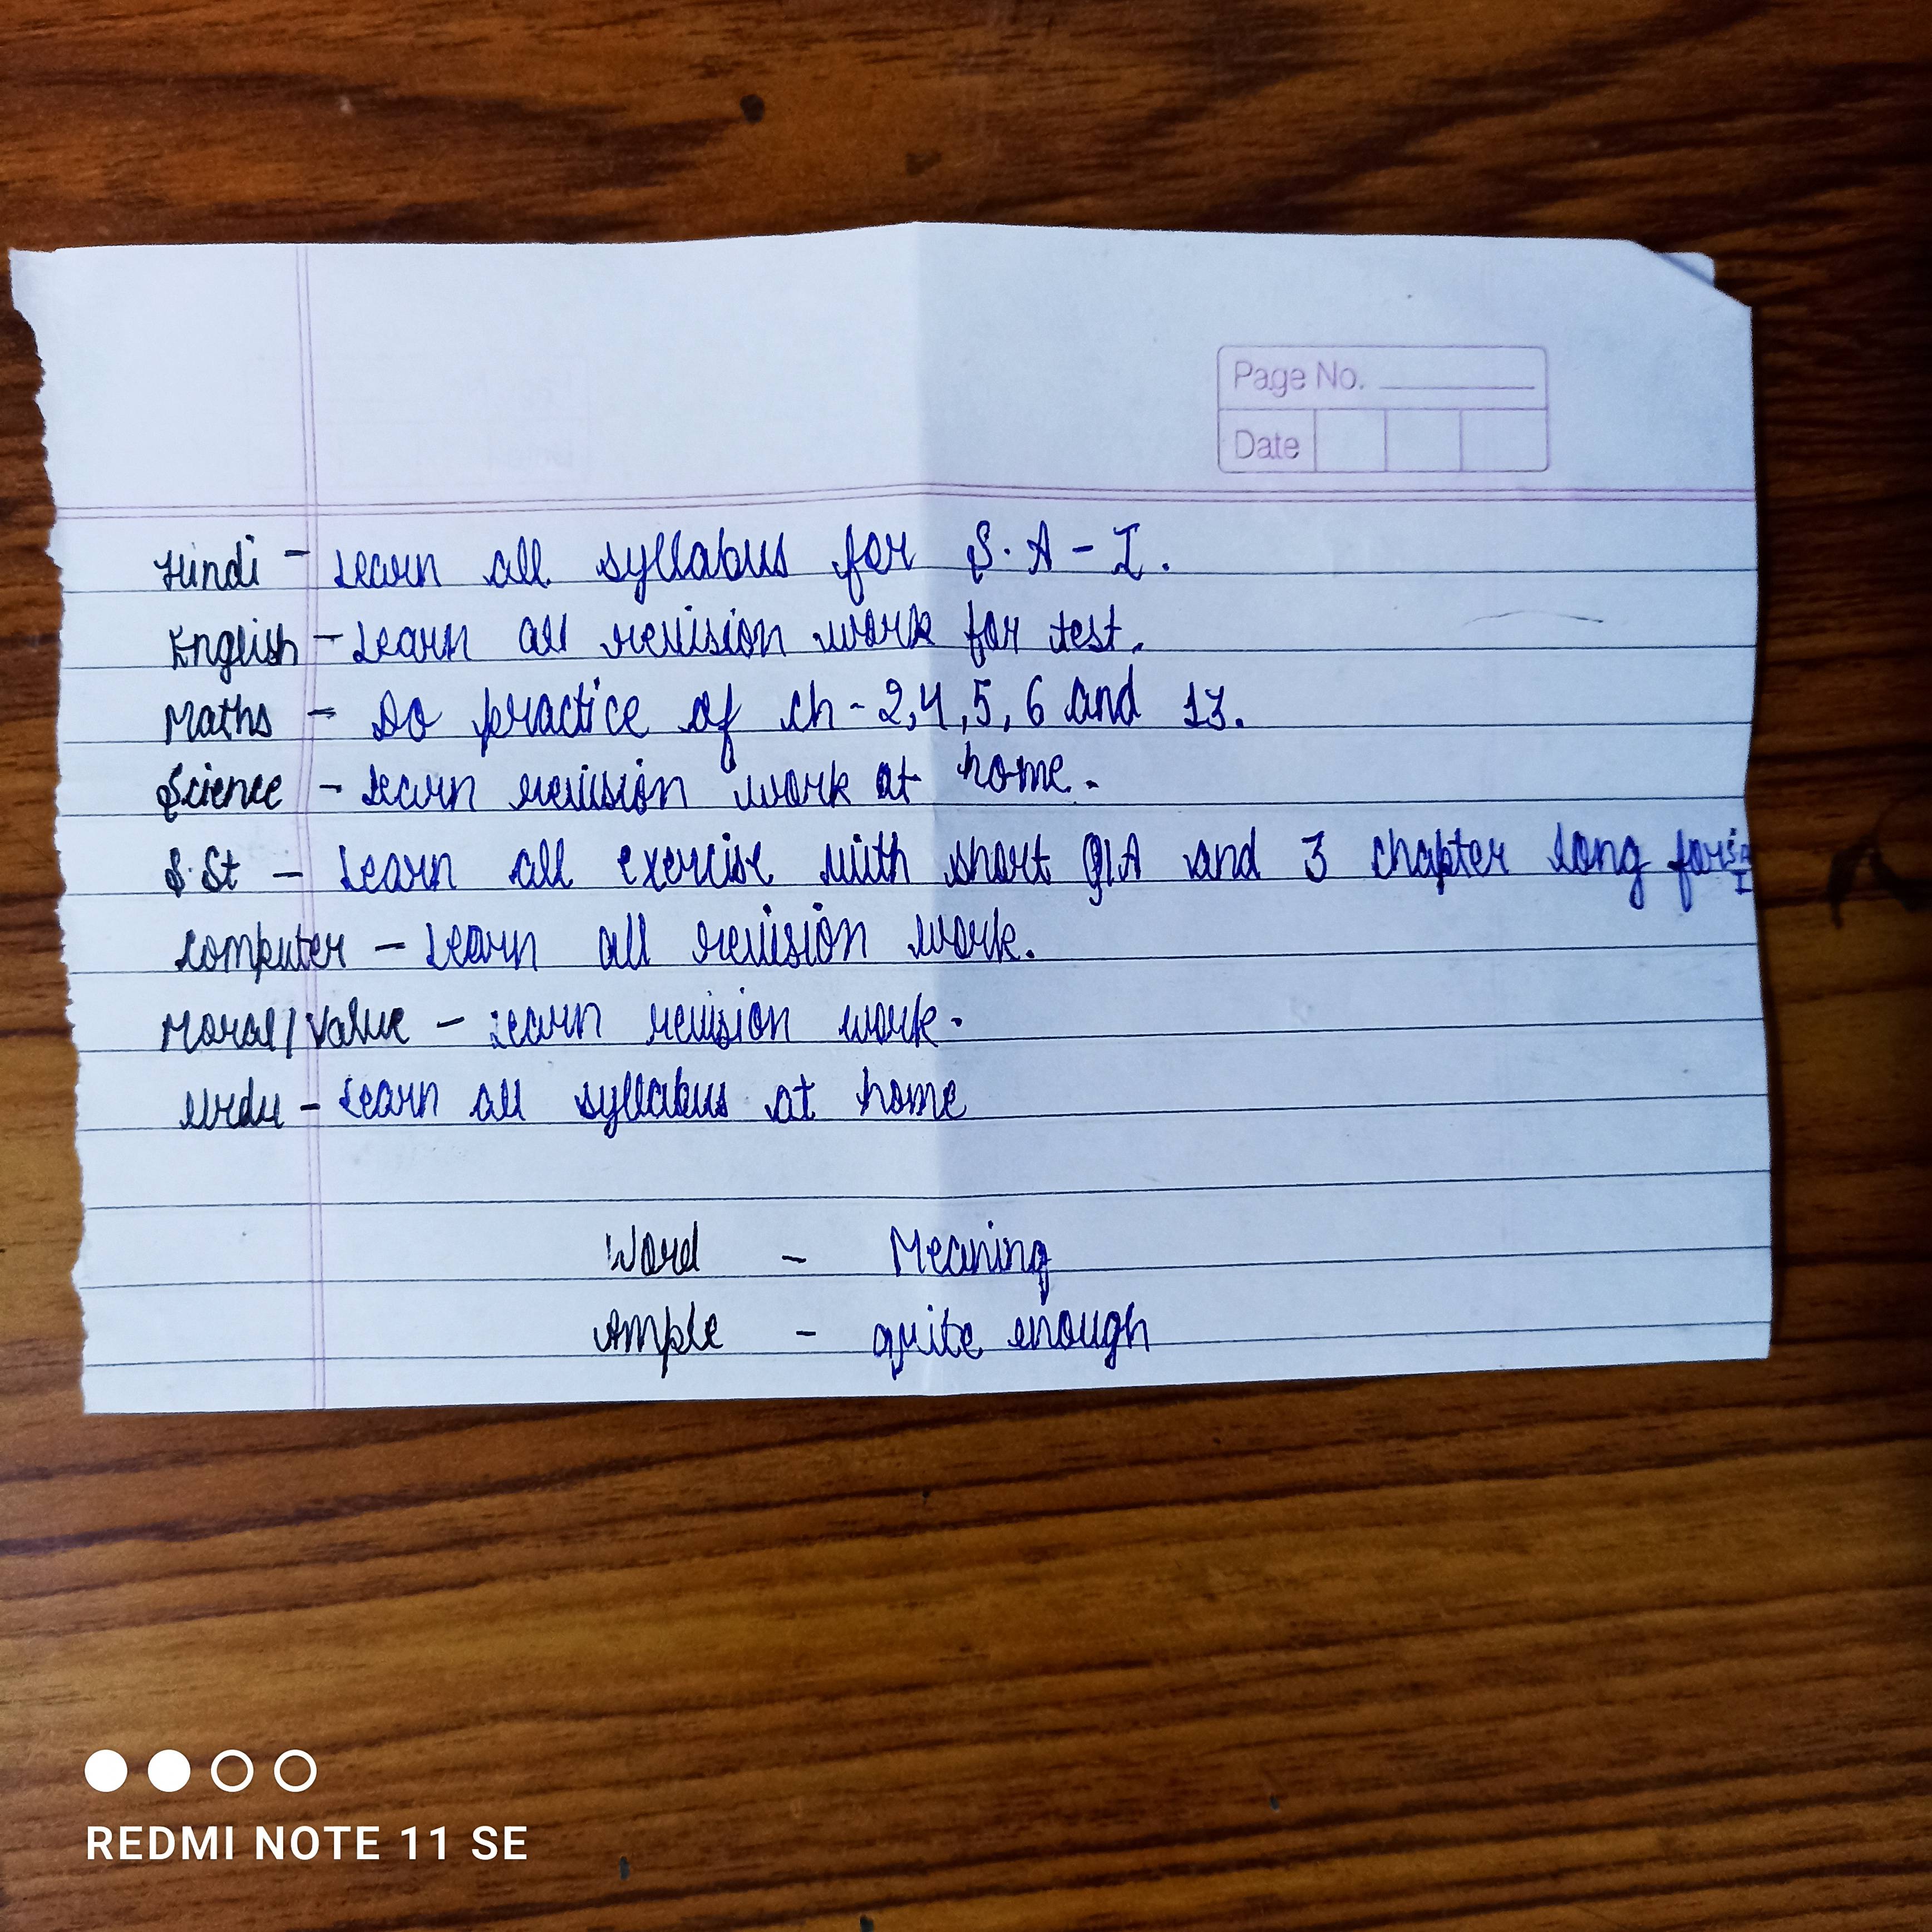 Page No.
Date
Hindi - Learn all syllabus for S.A - I.
English - Learn all revision work for test.
Maths - Do practice of ch - 2,4,5,6 and 13.
Science - Learn revision work at home.
S.St - Learn all exercise with short Q/A and 3 chapter long for S.A I
Computer - Learn all revision work.
Moral/Value - Learn revision work.
Urdu - Learn all syllabus at home
Word - Meaning
Ample - quite enough
REDMI NOTE 11 SE